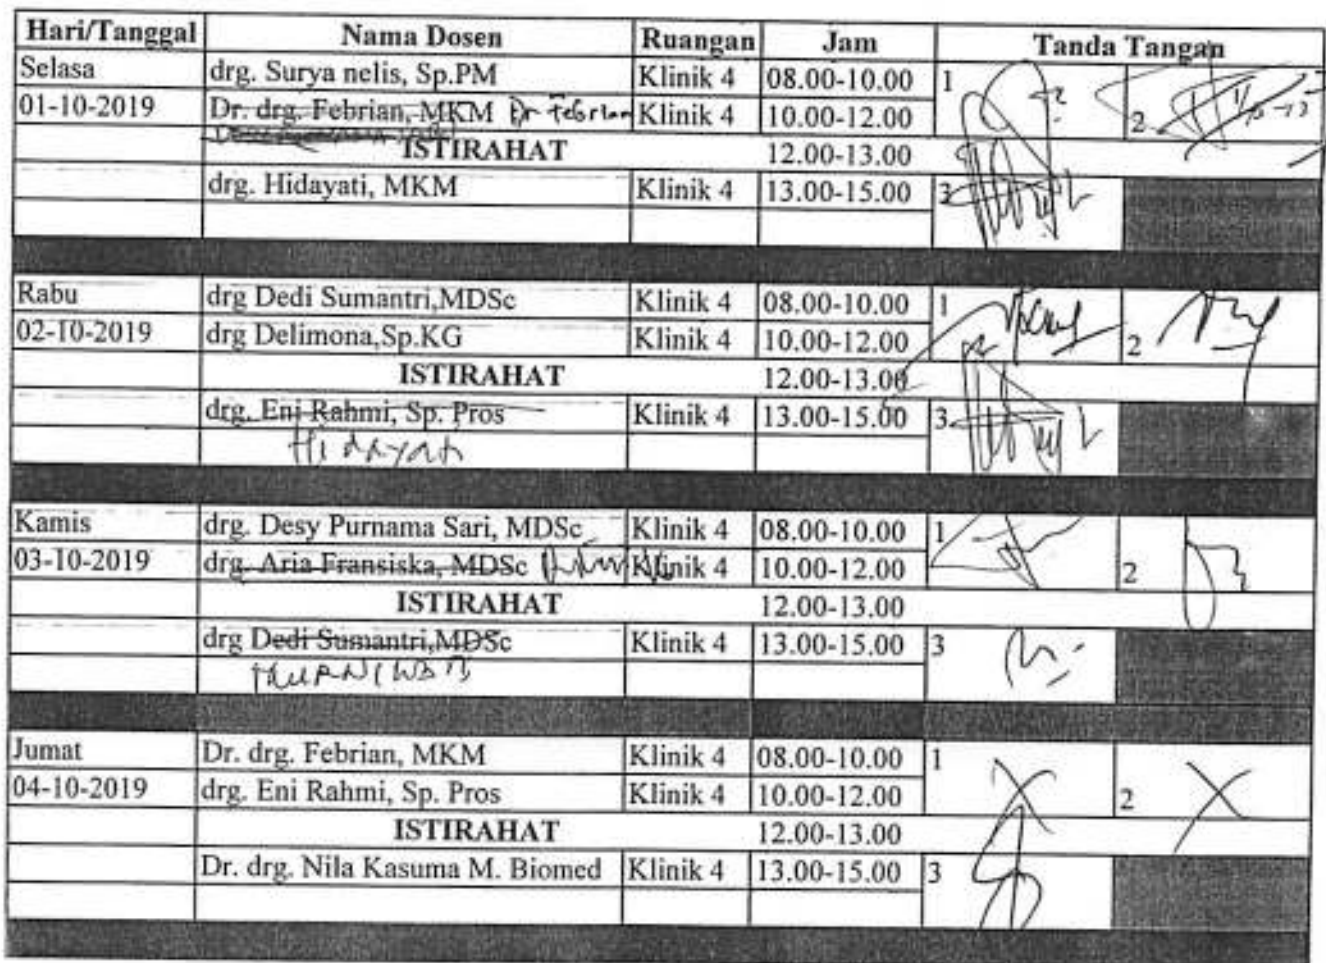 Hari/Tanggal Nama Dosen Ruangan Jam Tanda Tangan
Selasa drg. Surya nelis, Sp.PM Klinik 4 08.00-10.00 1
01-10-2019 Dr. drg. Febrian, MKM Dr Febrian Klinik 4 10.00-12.00 2
ISTIRAHAT 12.00-13.00
drg. Hidayati, MKM Klinik 4 13.00-15.00 3
Rabu drg Dedi Sumantri,MDSc Klinik 4 08.00-10.00 1
02-10-2019 drg Delimona,Sp.KG Klinik 4 10.00-12.00 2
ISTIRAHAT 12.00-13.00
drg. Eni Rahmi, Sp. Pros Klinik 4 13.00-15.00 3
Hidayati
Kamis drg. Desy Purnama Sari, MDSc Klinik 4 08.00-10.00 1
03-10-2019 drg. Aria Fransiska, MDSc Klinik 4 10.00-12.00 2
ISTIRAHAT 12.00-13.00
drg Dedi Sumantri,MDSc Klinik 4 13.00-15.00 3
Jumat Dr. drg. Febrian, MKM Klinik 4 08.00-10.00 1
04-10-2019 drg. Eni Rahmi, Sp. Pros Klinik 4 10.00-12.00 2
ISTIRAHAT 12.00-13.00
Dr. drg. Nila Kasuma M. Biomed Klinik 4 13.00-15.00 3